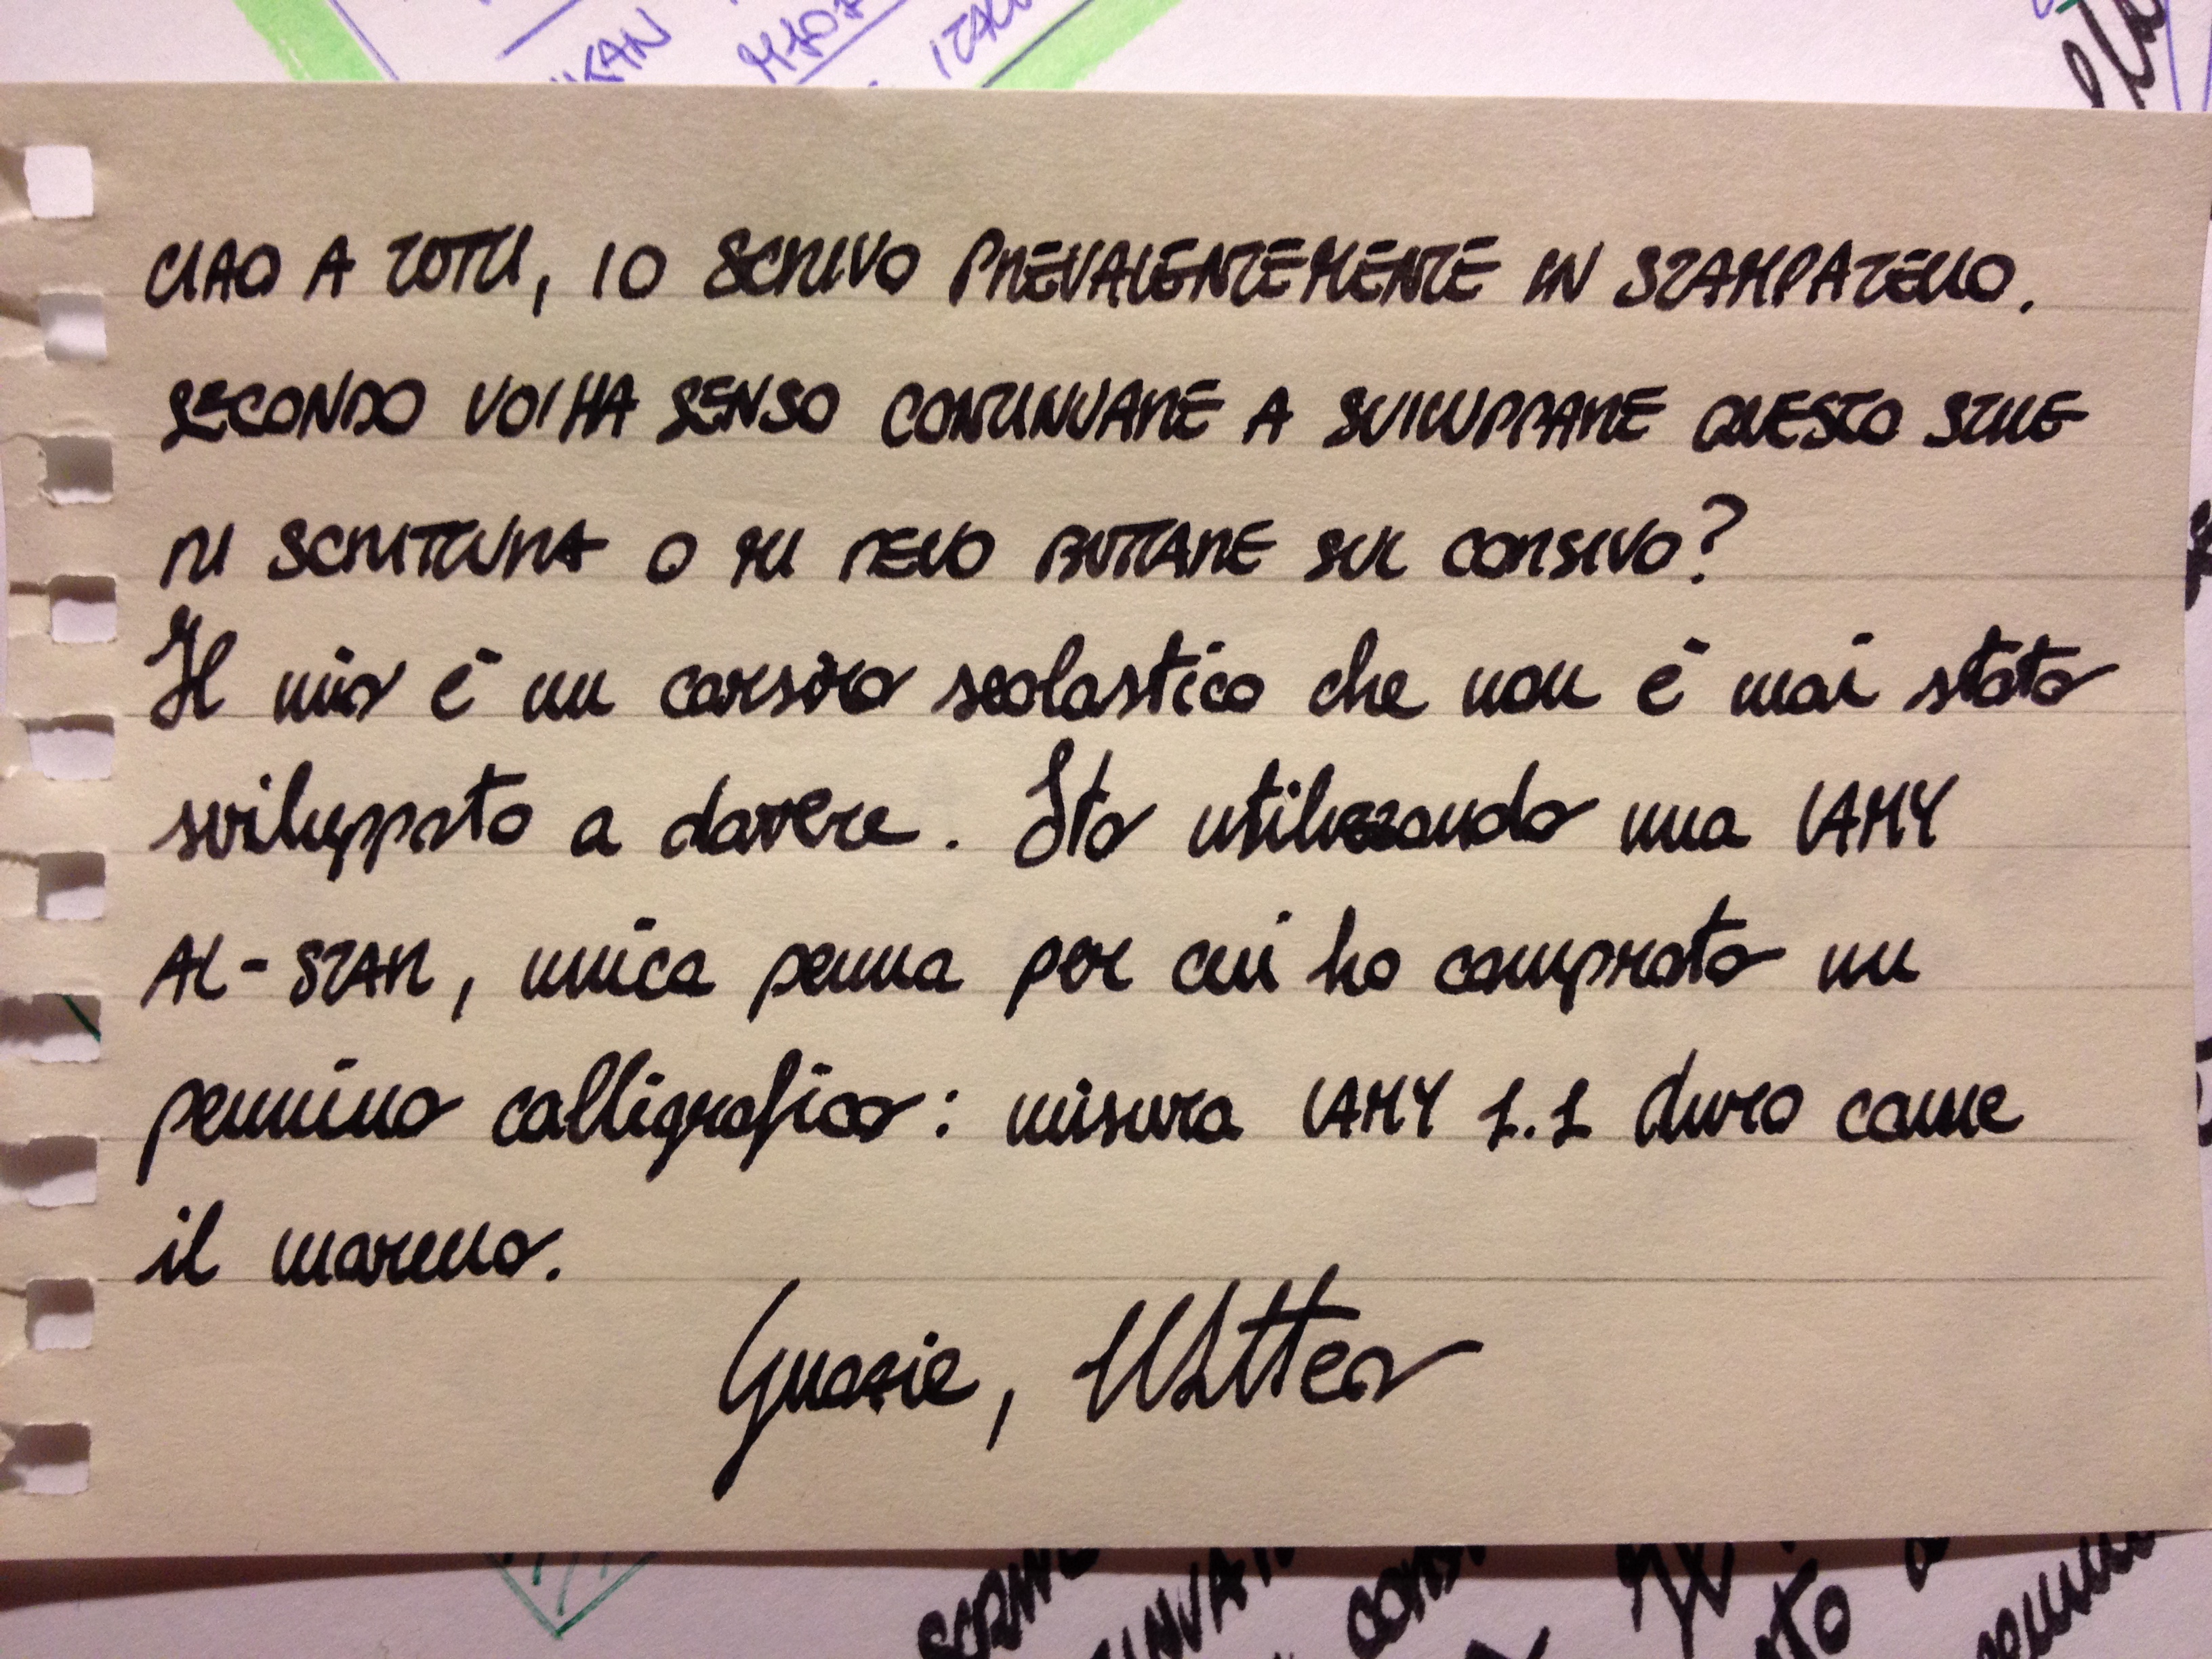 KAN
ITAL
CIAO A TUTTI, IO SCRIVO PREVALENTEMENTE IN STAMPATELLO.
SECONDO VOI HA SENSO CONTINUARE A SVILUPPARE QUESTO STILE
DI SCRITTURA O MI DEVO BUTTARE SUL CORSIVO?
Il mio è un corsivo scolastico che non è mai stato
sviluppato a dovere. Sto utilizzando una LAMY
AL-STAR, unica penna per cui ho comprato un
pennino calligrafico: misura LAMY 1.1 duro come
il marmo.
Grazie, Matteo